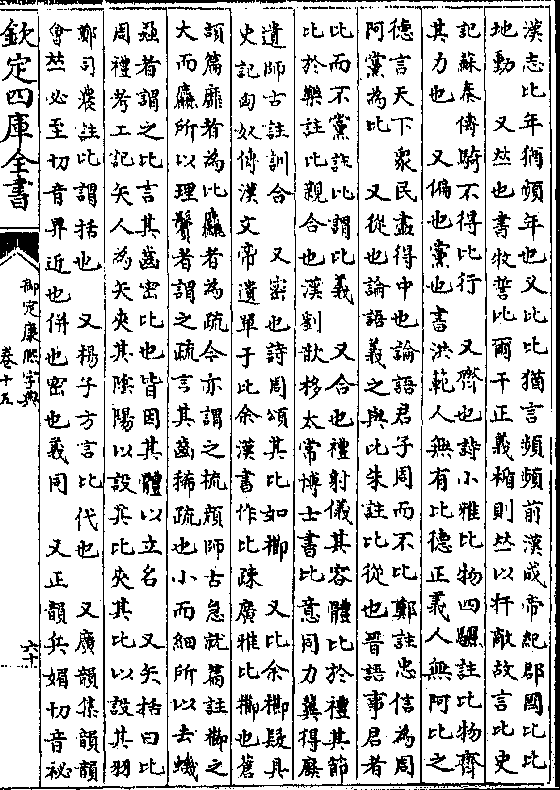 漢志比年猶頻年也又比比猶言頻頻前漢成帝紀郡國比比
地動 又𠀤也書牧誓比爾干正義楯則𠀤以扞敵故言比史
記蘇秦傳騎不得比行 又齊也詩小雅比物四驪註比物齊
其力也 又偏也黨也書洪範人無有比德正義人無阿比之
德言天下衆民盡得中也論語君子周而不比鄭註忠信為周
阿黨為比 又從也論語義之與比朱註比從也晉語事君者
比而不黨註比謂比義 又合也禮射儀其容體比於禮其節
比於樂註比親合也漢劉歆移太常博士書比意同力冀得廢
遺師古註訓合 又密也詩周頌其比如櫛 又比余櫛髮具
史記匈奴傳漢文帝遺單于比余漢書作比疎廣雅比櫛也蒼
頡篇靡者為比麤者為疏今亦謂之梳顏師古急就篇註櫛之
大而麤所以理鬢者謂之疏言其齒稀疏也小而細所以去蟣
蝨者謂之比言其齒密比也皆因其體以立名 又矢括曰比
周禮考工記矢人為矢夾其陰陽以設其比夾其比以設其羽
鄭司農註比謂括也 又楊子方言比代也 又廣韻集韻韻
會𠀤必至切音畀近也併也密也義同 又正韻兵媚切音祕
欽定四庫全書
御定康熙字典
卷十五
六十